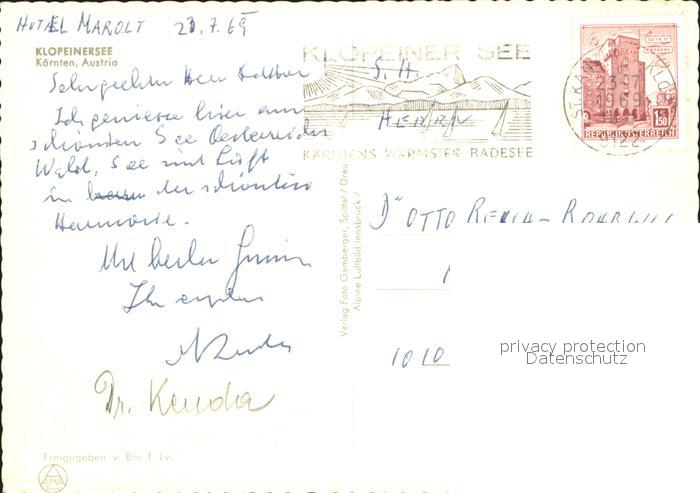 HOTEL MAROLT 23.7.69
KLOPEINERSEE
Kärnten, Austria
Sehr geehrter Herr
Ich geniesse hier am
schönsten See Oesterreichs
Wald, See und Luft
in der schönsten
Harmonie.
Mit besten Grüssen
Ihr ergebener
Dr. Kenda
Freigegeben v. Bm. f. Lv.
KLOPEINER SEE
KÄRNTENS WÄRMSTER BADESEE
WIEN
ERDBERG
1.50
REPUBLIK ÖSTERREICH
ST. KANZIAN
23.-7.
1969
9122
S. H.
HERRN
Dr OTTO
1010
Verlag Foto Gamberger, Spittal / Drau
Alpine Luftbild Innsbruck /
privacy protection
Datenschutz